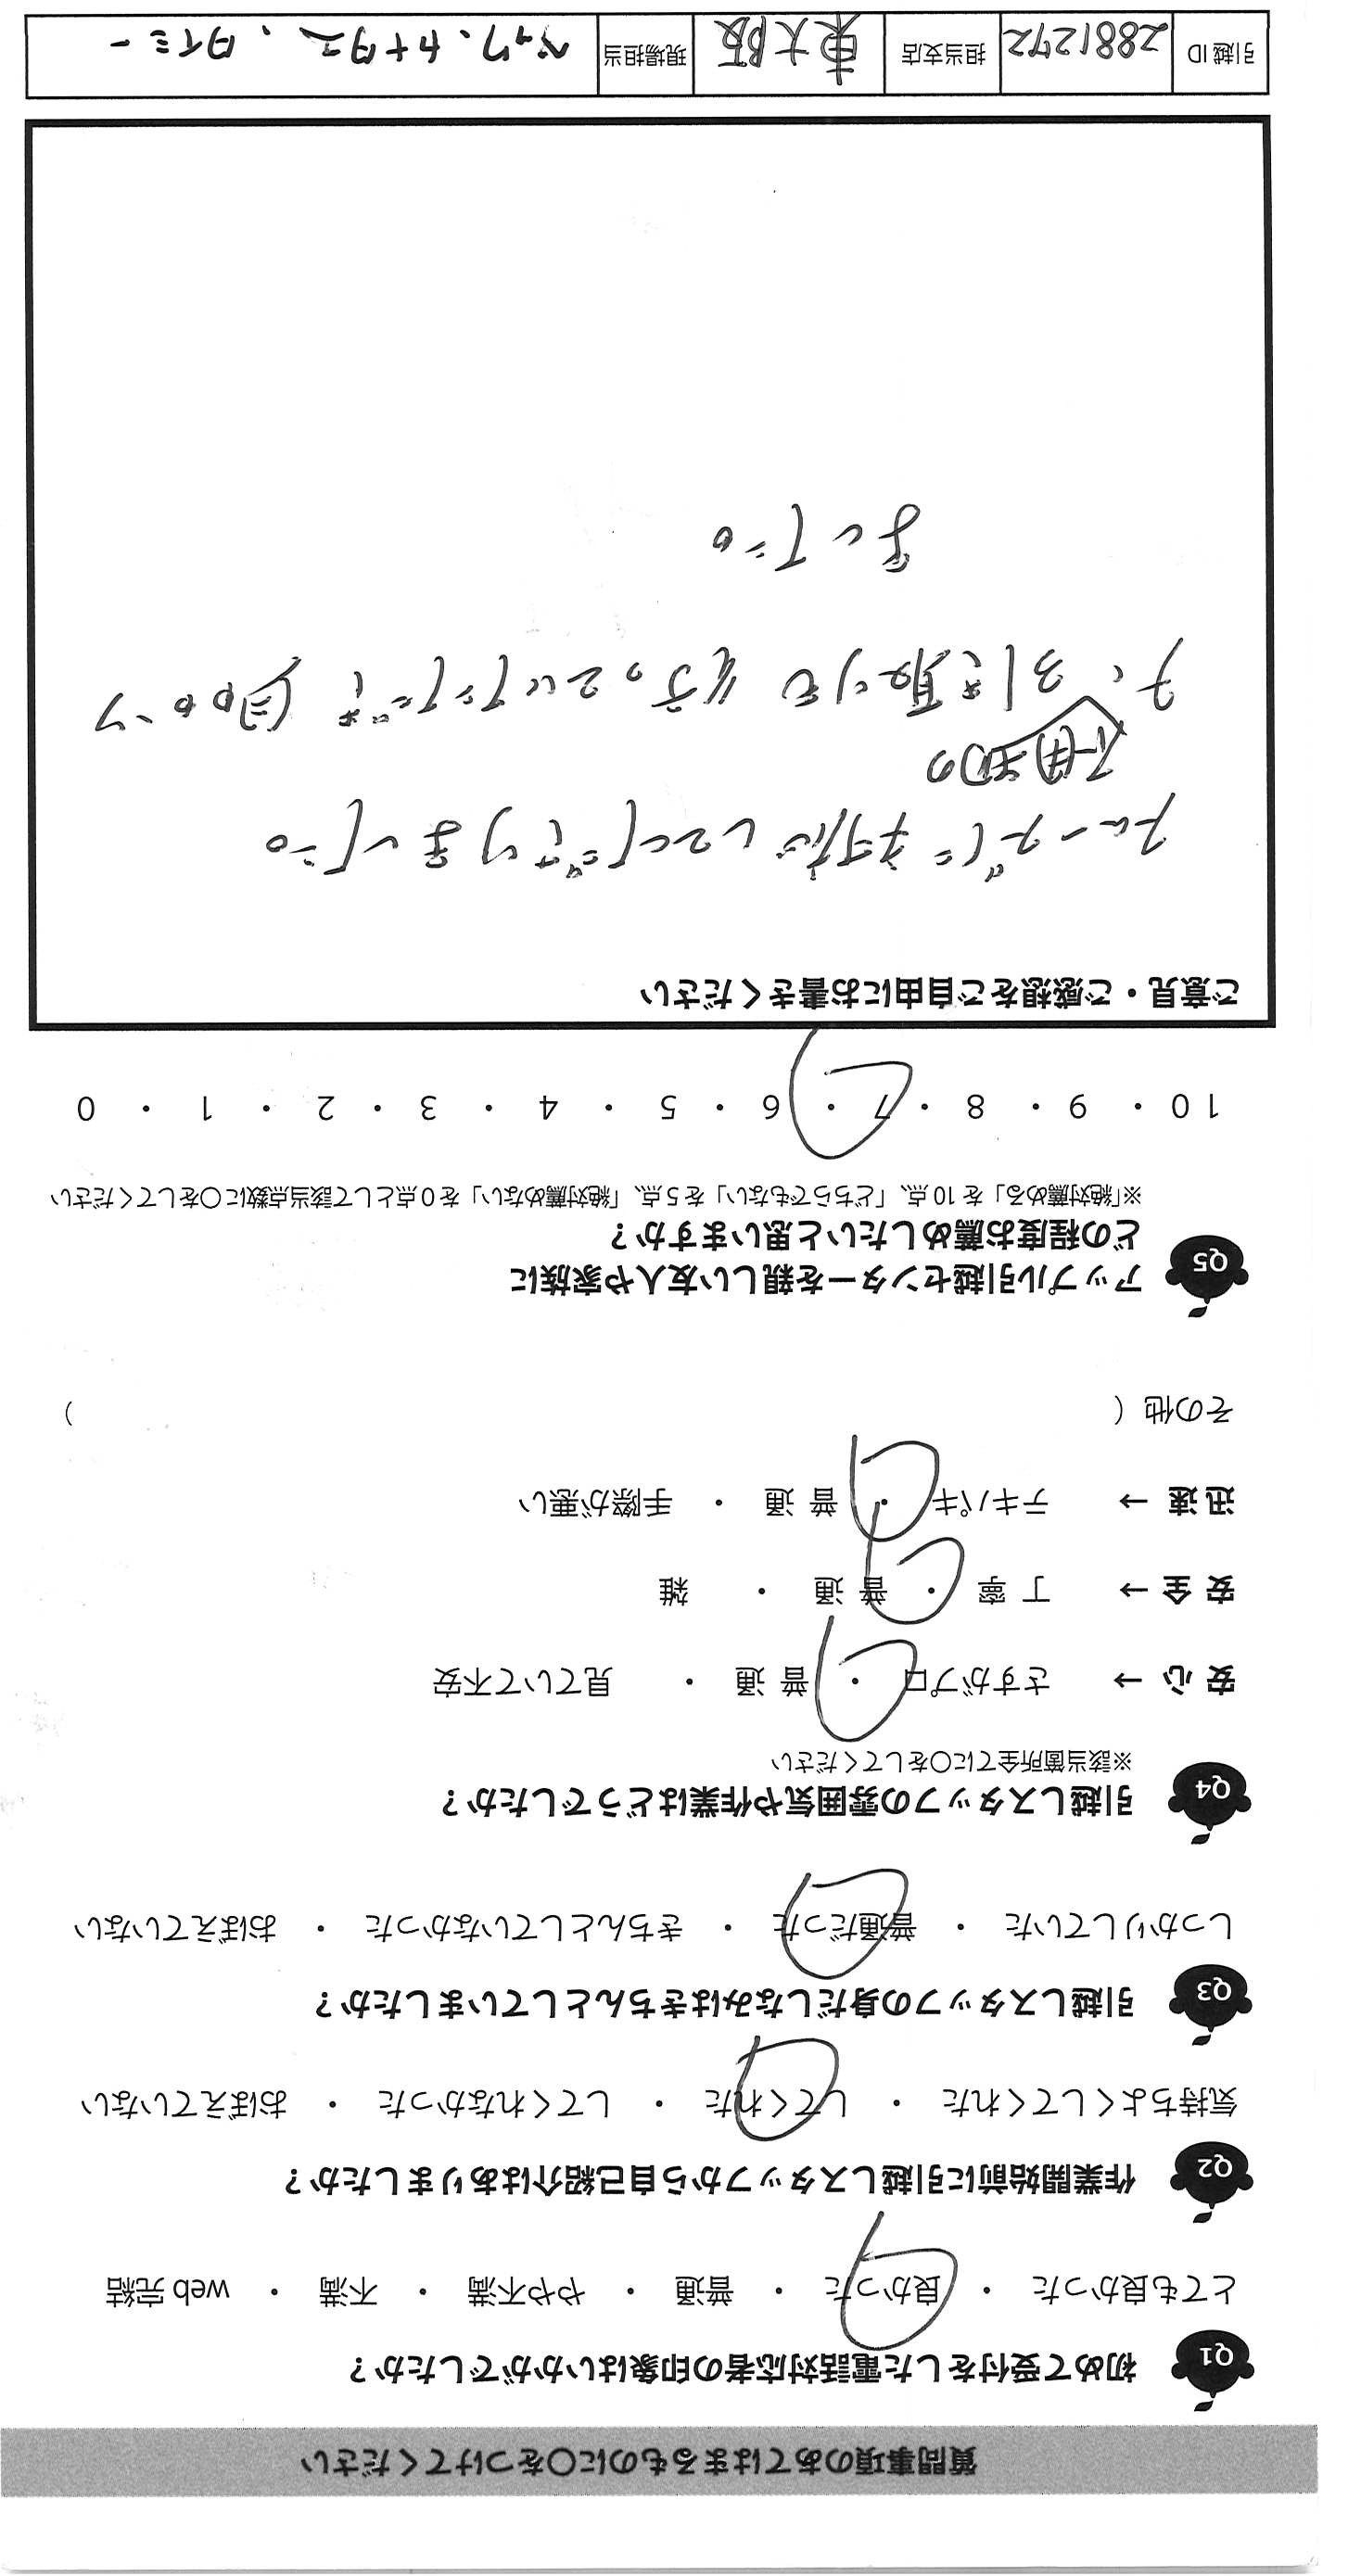 質問事項のあてはまるものに〇をつけてください
Q1 初めて受付をした電話対応者の印象はいかがでしたか？
とても良かった ・ 良かった ・ 普通 ・ やや不満 ・ 不満 ・ web 完結
Q2 作業開始前に引越しスタッフから自己紹介はありましたか？
気持ちよくしてくれた ・ してくれた ・ してくれなかった ・ おぼえていない
Q3 引越しスタッフの身だしなみはきちんとしていましたか？
しっかりしていた ・ 普通だった ・ きちんとしていなかった ・ おぼえていない
Q4 引越しスタッフの雰囲気や作業はどうでしたか？
※該当箇所全てに〇をしてください
安 心 → さすがプロ ・ 普 通 ・ 見ていて不安
安 全 → 丁 寧 ・ 普 通 ・ 雑
迅 速 → テキパキ ・ 普 通 ・ 手際が悪い
その他 （ ）
Q5 アップル引越センターを親しい友人や家族に
どの程度お薦めしたいと思いますか？
※「絶対薦める」を 10 点、「どちらでもない」を 5 点、「絶対薦めない」を 0 点として該当点数に〇をしてください
10 ・ 9 ・ 8 ・ 7 ・ 6 ・ 5 ・ 4 ・ 3 ・ 2 ・ 1 ・ 0
ご意見・ご感想をご自由にお書きください
スムーズに対応してくださりました。
不用品の
引き取りも 行っていただき 助かり
ました。
引越 ID 2881272 担当支店 東大阪 現場担当 タイミー